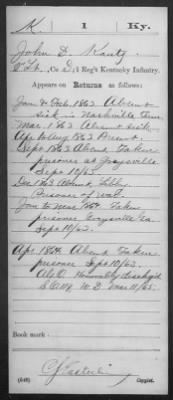 K | 1 | Ky.
John D. Kautz
1" Lt., Co. D, 1 Reg't Kentucky Infantry.
Appears on Returns as follows:
Jan & Feb. 1863 Absent
sick in Nashville Tenn
Mar. 1863 Absent sick.
Sept 1863 Absent Taken
prisoner at Graysville
Sept 10/63.
Dec 1863 Absent, Libby
Prisoner of war
Jan to Mar 1864 Taken
prisoner Graysville Ga
Sept 10/63.
Apr 1864 Absent Taken
prisoner Sept 10/63.
Also Honorably discharged
Book mark:
(546) Copyist.